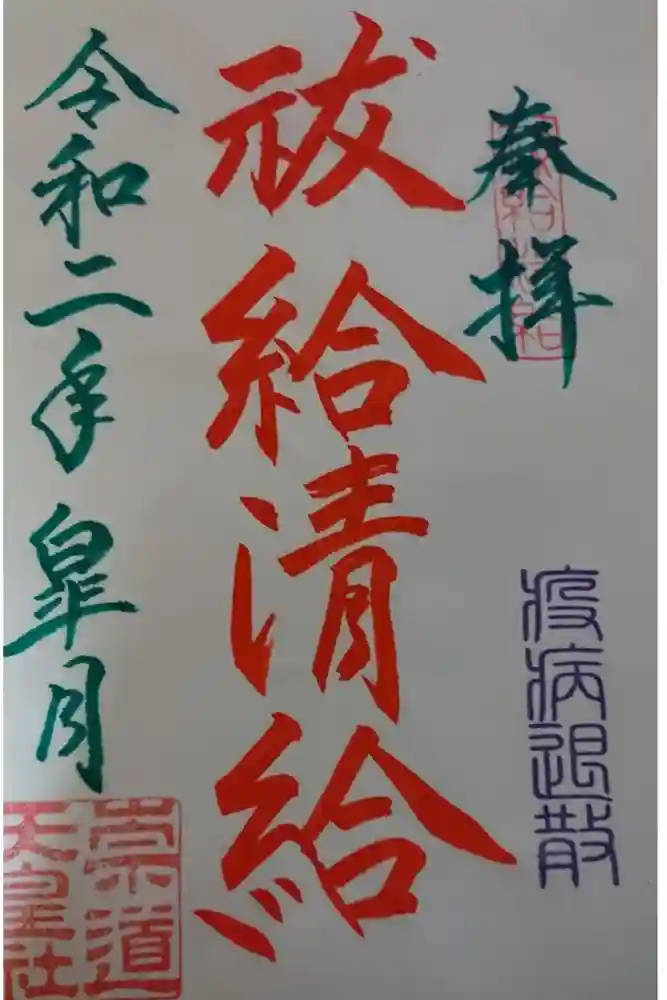 奉拝
疫病退散
祓給清給
令和二年皐月
崇道
天皇社